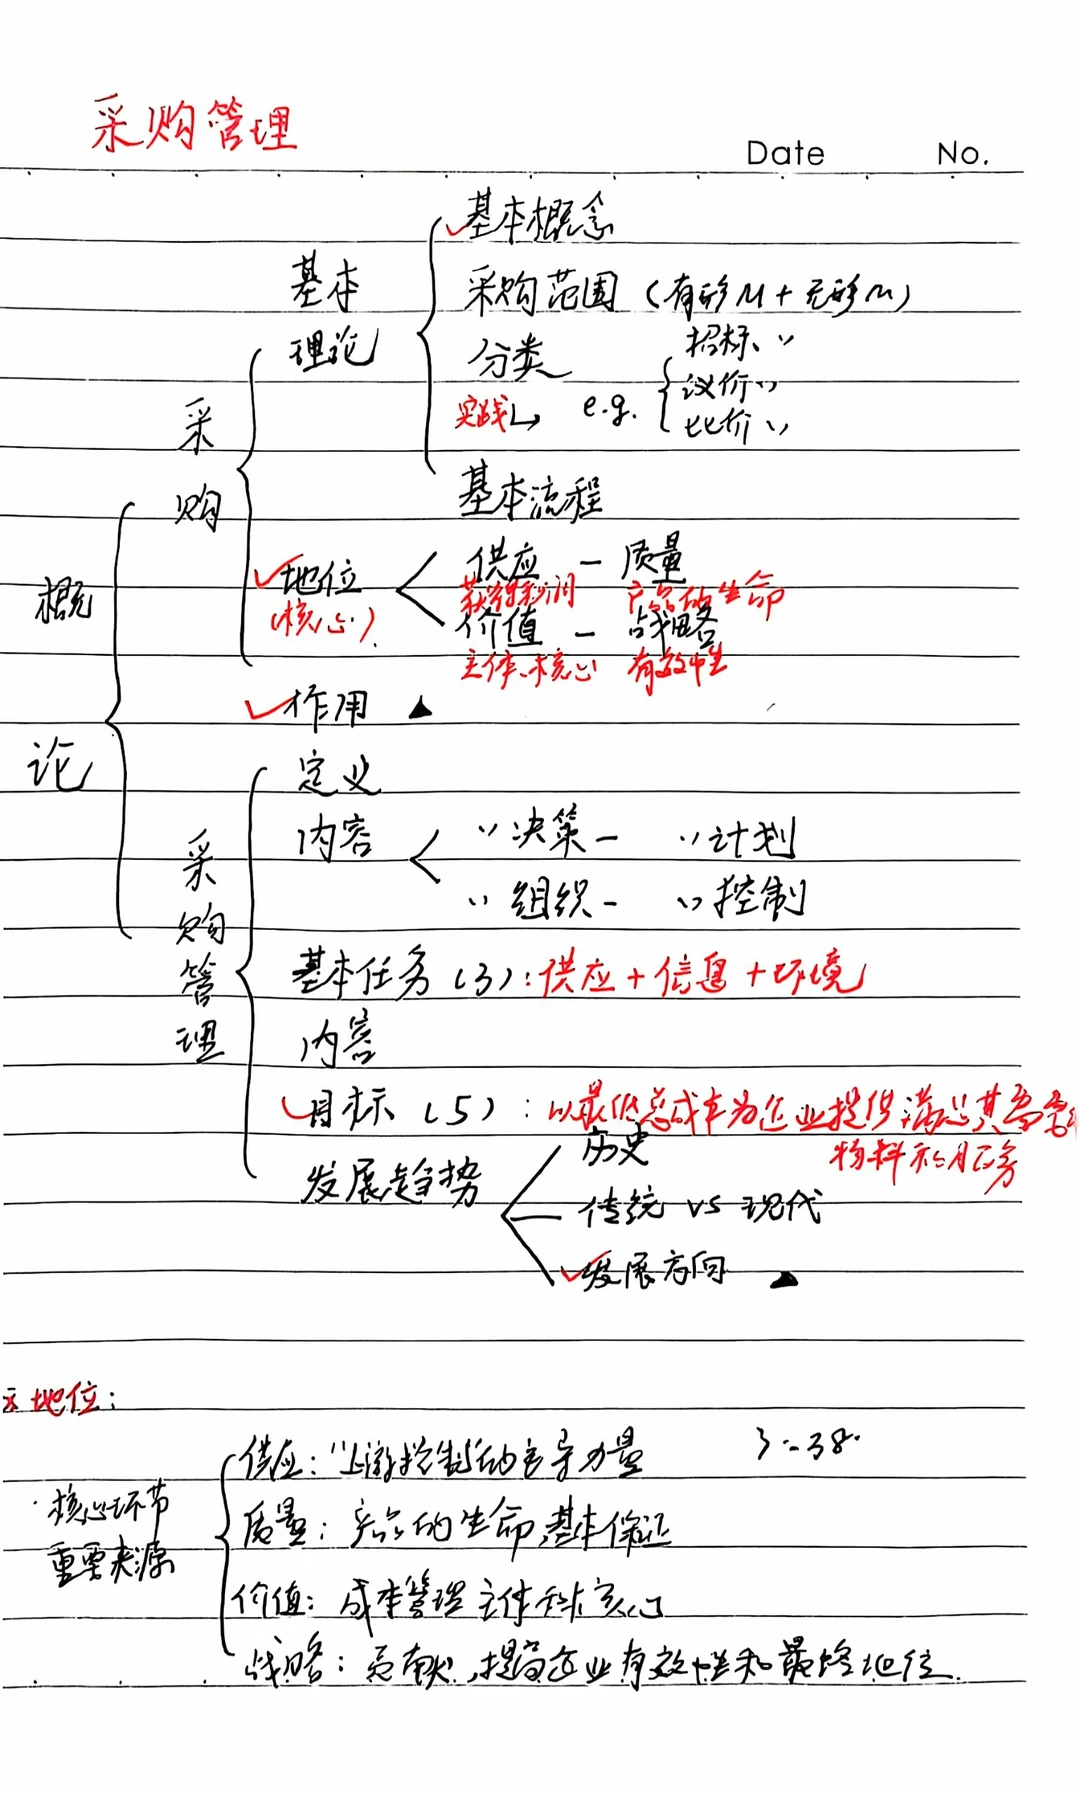 采购管理
Date No.
基本概念
基本
理论
采购范围（有形M + 无形M）
分类
招标、〃
实践 e.g. 议价〃
比价〃
采
购
基本流程
概
地位
(核心)
供应 — 质量
获得利润 产品的生命
价值 — 战略
主体、核心 有效性
作用 ▲
论
定义
内容
〃决策 — 〃计划
〃组织 — 〃控制
采
购
管
理
基本任务（3）：供应 + 信息 + 环境
内容
目标（5）：以最低总成本为企业提供满足其需
物料和服务
发展趋势
历史
传统 vs 现代
发展方向 ▲
地位：
核心环节
重要来源
供应："上游控制"的主导力量
质量：产品的生命,基本保证
价值：成本管理主体和核心
战略：贡献,提高企业有效性和最终地位.